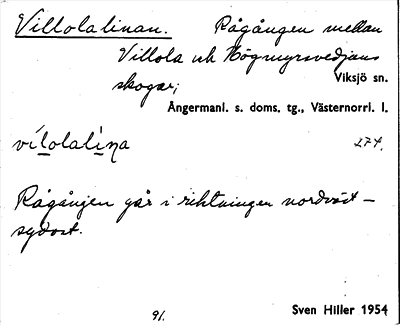 Villolalinan. Rågången mellan
Villola och Högmyrsvedjans
skogar;
Viksjö sn.
Ångermanl. s. doms. tg., Västernorrl. l.
vílolalìna 274.
Rågången går i riktningen nordväst –
sydost.
91. Sven Hiller 1954